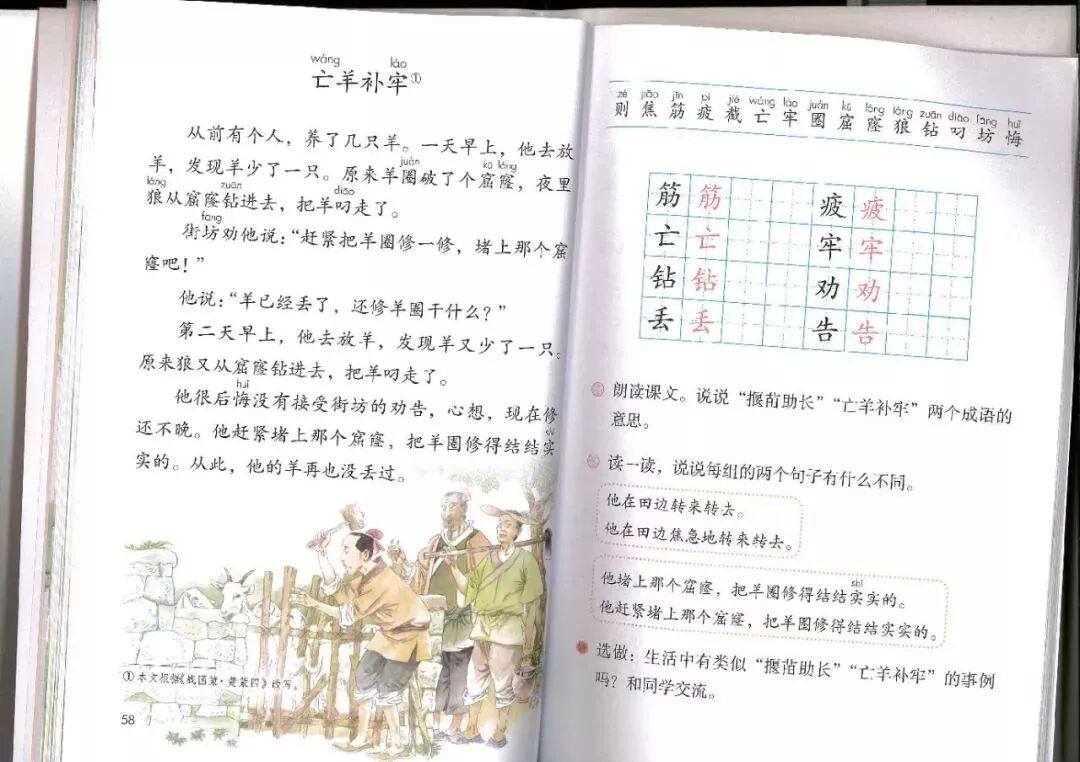 wáng láo
亡羊补牢①
从前有个人，养了几只羊。一天早上，他去放
juàn kū lóng
羊，发现羊少了一只。原来羊圈破了个窟窿，夜里
láng zuān diāo
狼从窟窿钻进去，把羊叼走了。
fang
街坊劝他说：“赶紧把羊圈修一修，堵上那个窟
窿吧！”
他说：“羊已经丢了，还修羊圈干什么？”
第二天早上，他去放羊，发现羊又少了一只。
原来狼又从窟窿钻进去，把羊叼走了。
huǐ
他很后悔没有接受街坊的劝告，心想，现在修
还不晚。他赶紧堵上那个窟窿，把羊圈修得结结实
实的。从此，他的羊再也没丢过。
①本文根据《战国策·楚策四》改写。
58
zé jiāo jīn pí jié wáng láo juàn kū lóng láng zuān diāo fāng huǐ
则 焦 筋 疲 截 亡 牢 圈 窟 窿 狼 钻 叼 坊 悔
筋 筋 疲 疲
亡 亡 牢 牢
钻 钻 劝 劝
丢 丢 告 告
朗读课文。说说“揠苗助长”“亡羊补牢”两个成语的
意思。
读一读，说说每组的两个句子有什么不同。
他在田边转来转去。
他在田边焦急地转来转去。
shí
他堵上那个窟窿，把羊圈修得结结实实的。
他赶紧堵上那个窟窿，把羊圈修得结结实实的。
选做：生活中有类似“揠苗助长”“亡羊补牢”的事例
吗？和同学交流。